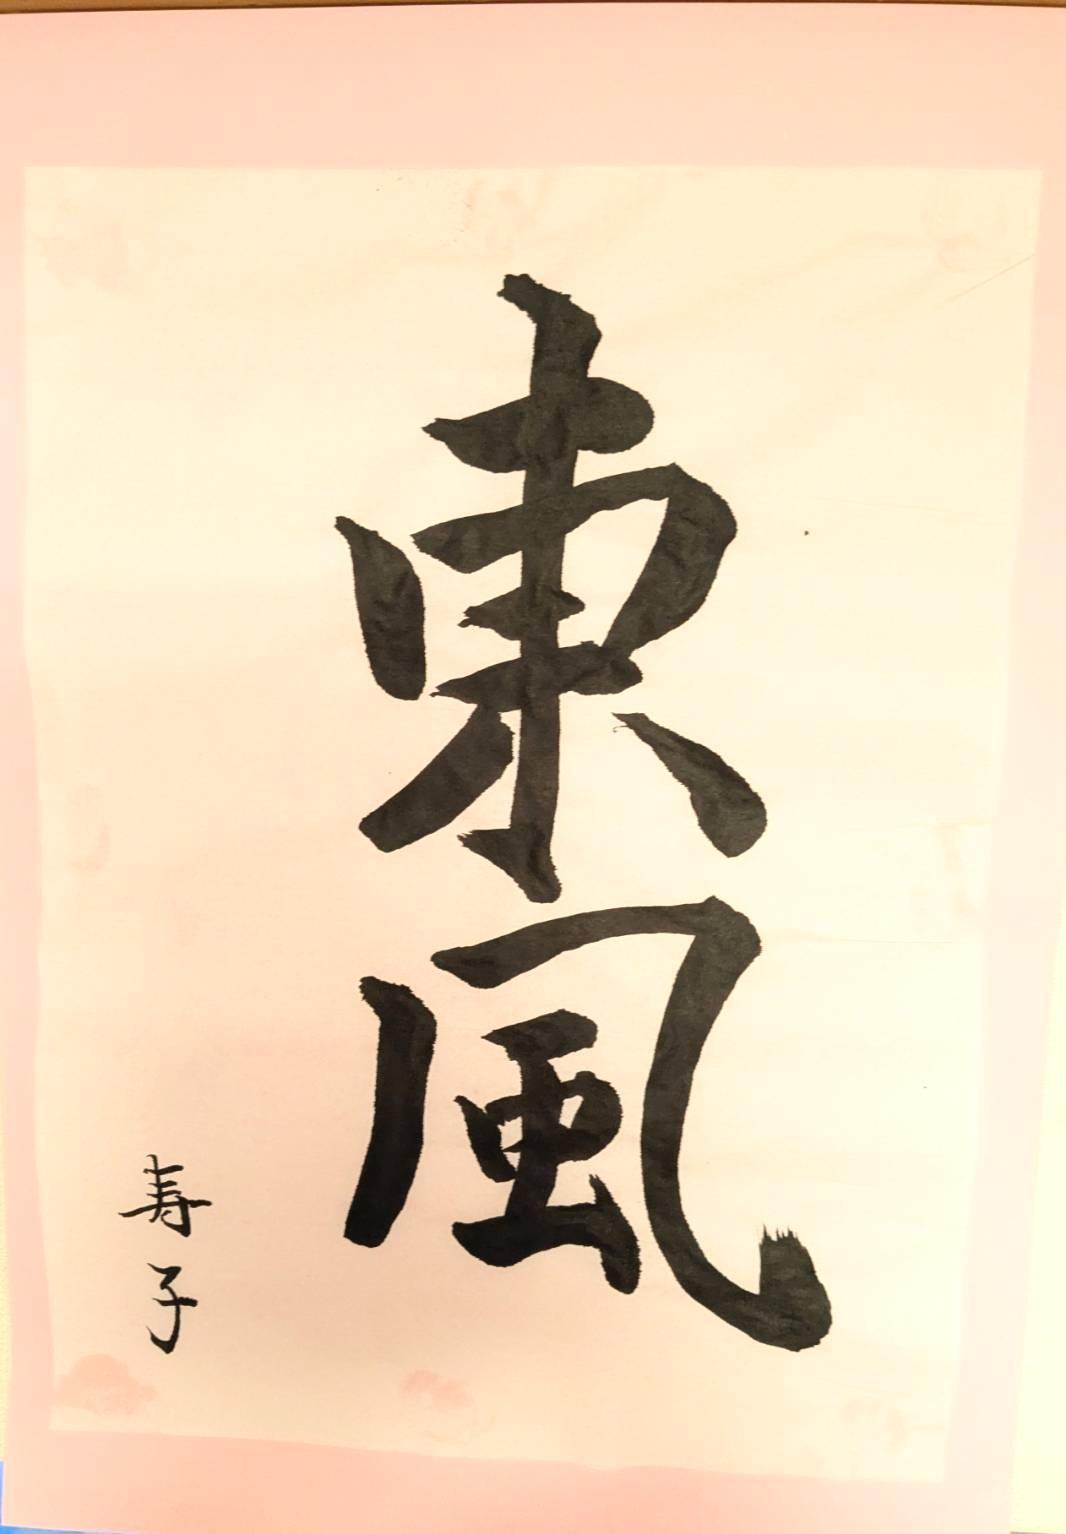 東風
寿子